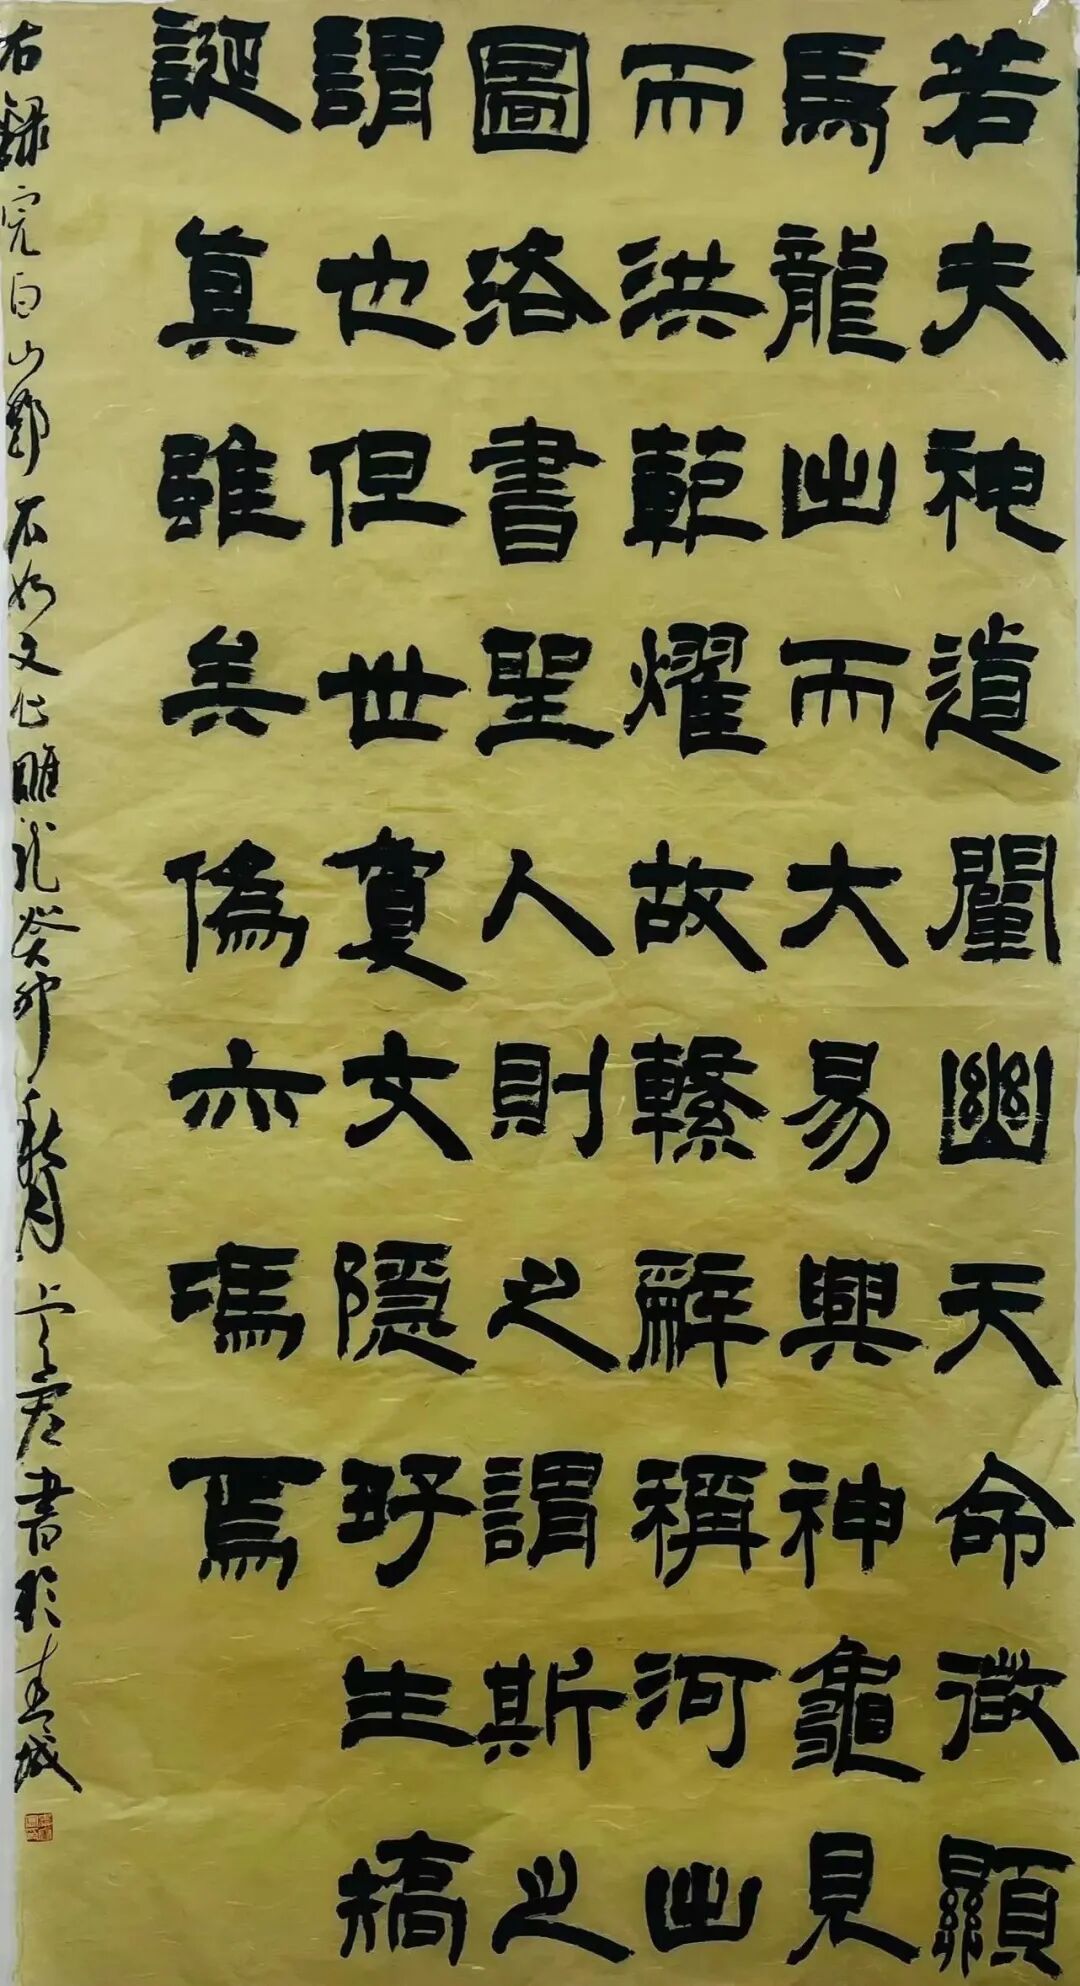 若夫神道闡幽天命微顯
馬龍出而大易興神龜見
而洪範耀故繫辭稱河出
圖洛書聖人則之謂斯之
謂也但世夐文隱好生矯
誕真雖矣偽亦馮焉
右録完白山鄧石如文心雕龍癸卯秋月書於春城